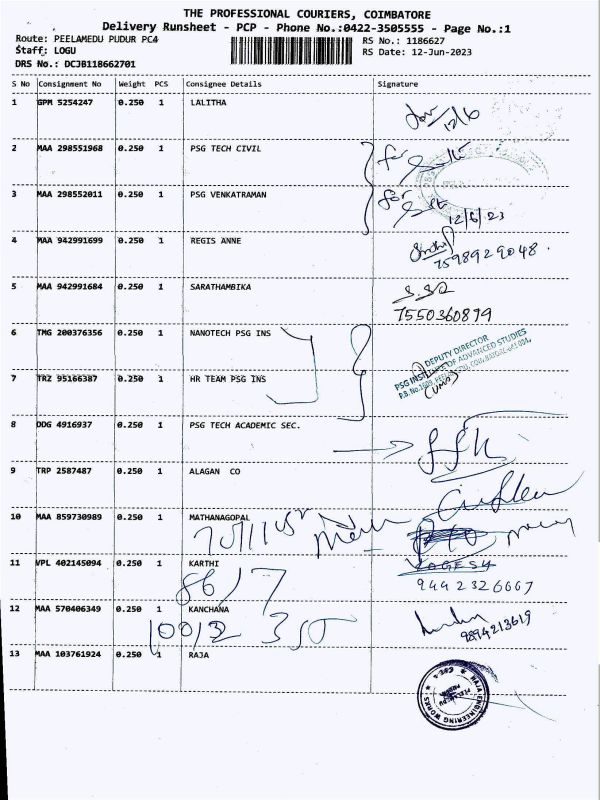 THE PROFESSIONAL COURIERS, COIMBATORE
Delivery Runsheet - PCP - Phone No.:0422-3505555 - Page No.:1
Route: PEELAMEDU PUDUR PC4
RS No.: 1186627
Staff: LOGU
RS Date: 12-Jun-2023
DRS No.: DCJB118662701
S No Consignment No Weight PCS Consignee Details Signature
1 GPM 5254247 0.250 1 LALITHA
12/6
2 MAA 298551968 0.250 1 PSG TECH CIVIL for
3 MAA 298552011 0.250 1 PSG VENKATRAMAN for
12/6/23
4 MAA 942991699 0.250 1 REGIS ANNE
7598929048
5 MAA 942991684 0.250 1 SARATHAMBIKA
7550360879
6 TMG 200376356 0.250 1 NANOTECH PSG INS
DEPUTY DIRECTOR
PSG INSTITUTE OF ADVANCED STUDIES
7 TRZ 95166387 0.250 1 HR TEAM PSG INS
8 DDG 4916937 0.250 1 PSG TECH ACADEMIC SEC.
9 TRP 2587487 0.250 1 ALAGAN CO
10 MAA 859730989 0.250 1 MATHANAGOPAL
11 VPL 402145094 0.250 1 KARTHI YOGESH
86/7 9442326667
12 MAA 570406349 0.250 1 KANCHANA
9894213619
13 MAA 103761924 0.250 1 RAJA
RAJA ENGINEERING WORKS